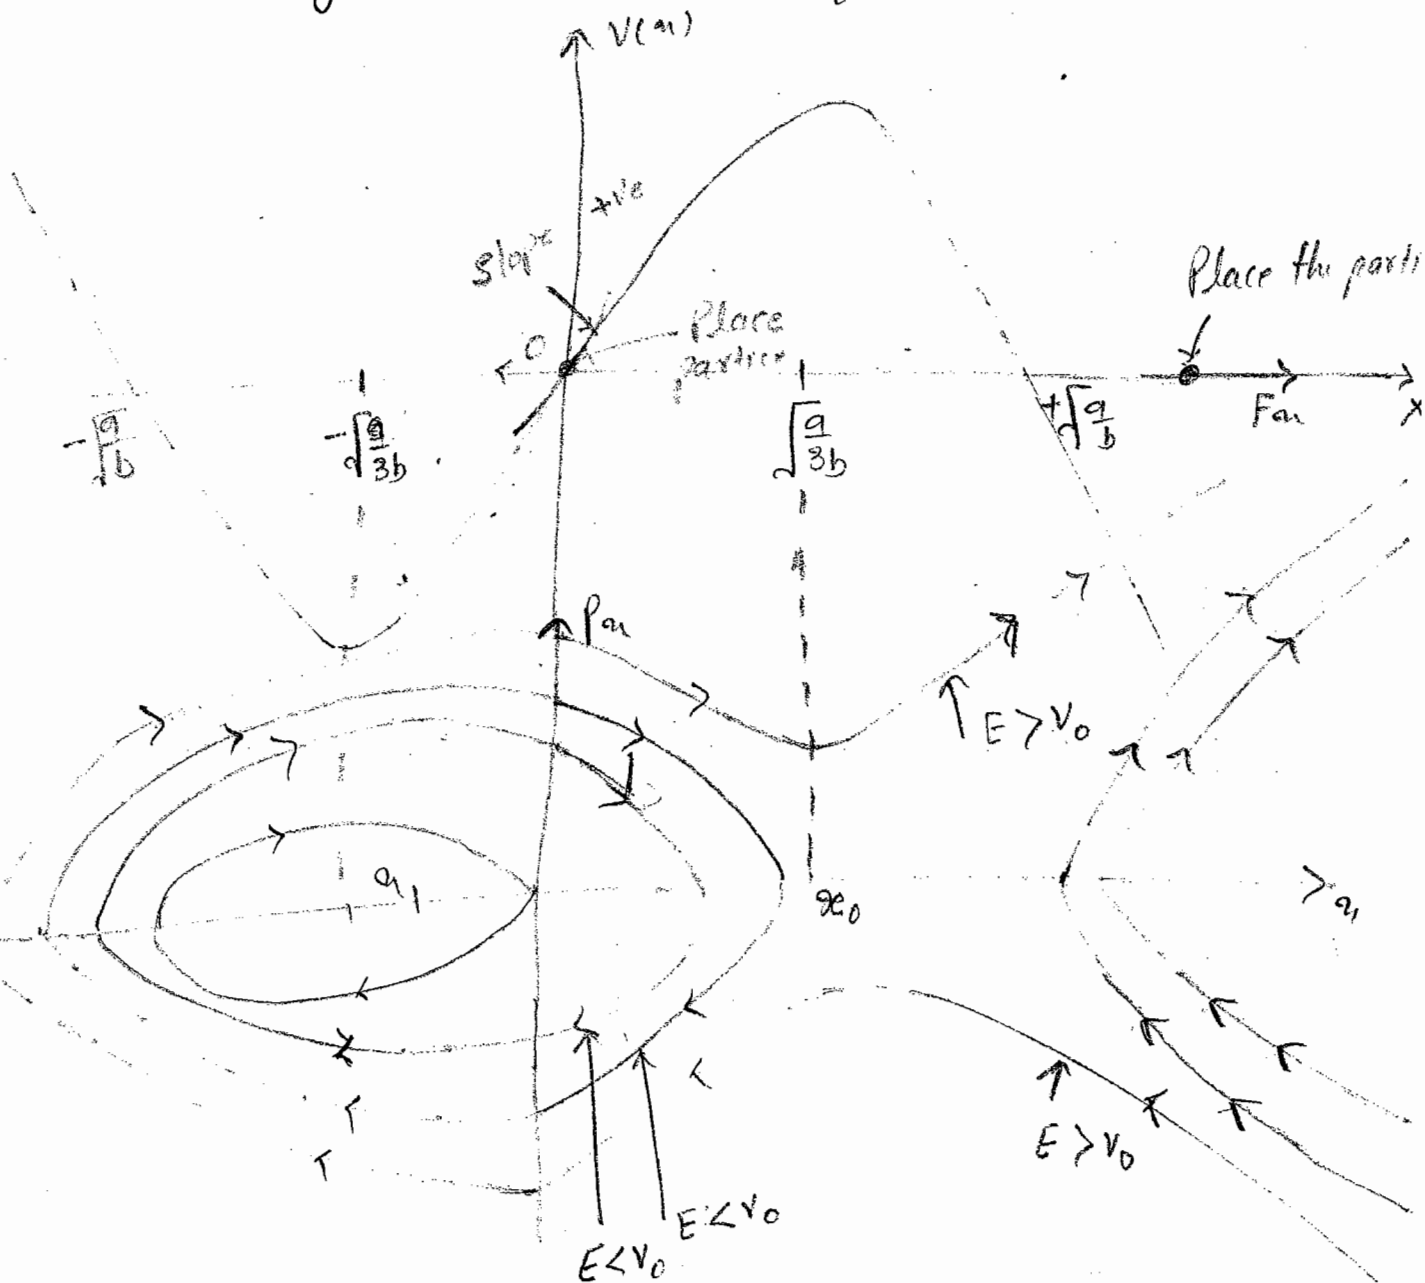 V(x)
+ve
slope
Place the parti
O
Place
particle
-√(a/b)
-√(a/3b)
√(a/3b)
+√(a/b)
Fx
x
Px
E > V0
x1
x0
x
E > V0
E < V0
E < V0